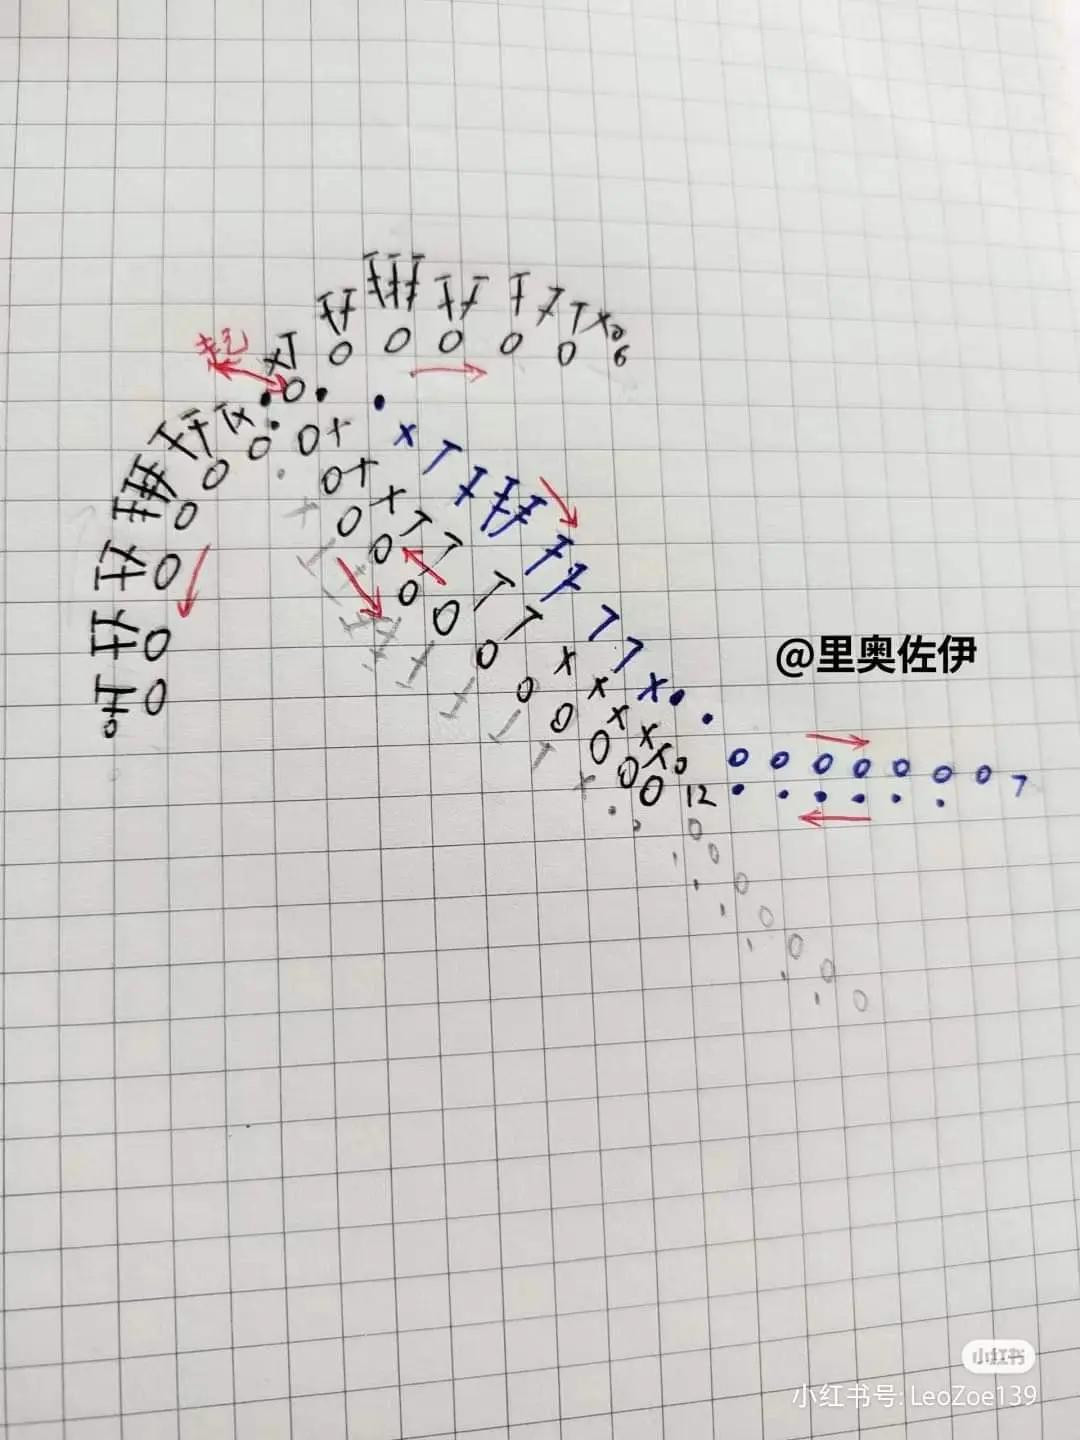 起
6
@里奥佐伊
7
12
小红书
小红书号: LeoZoe139